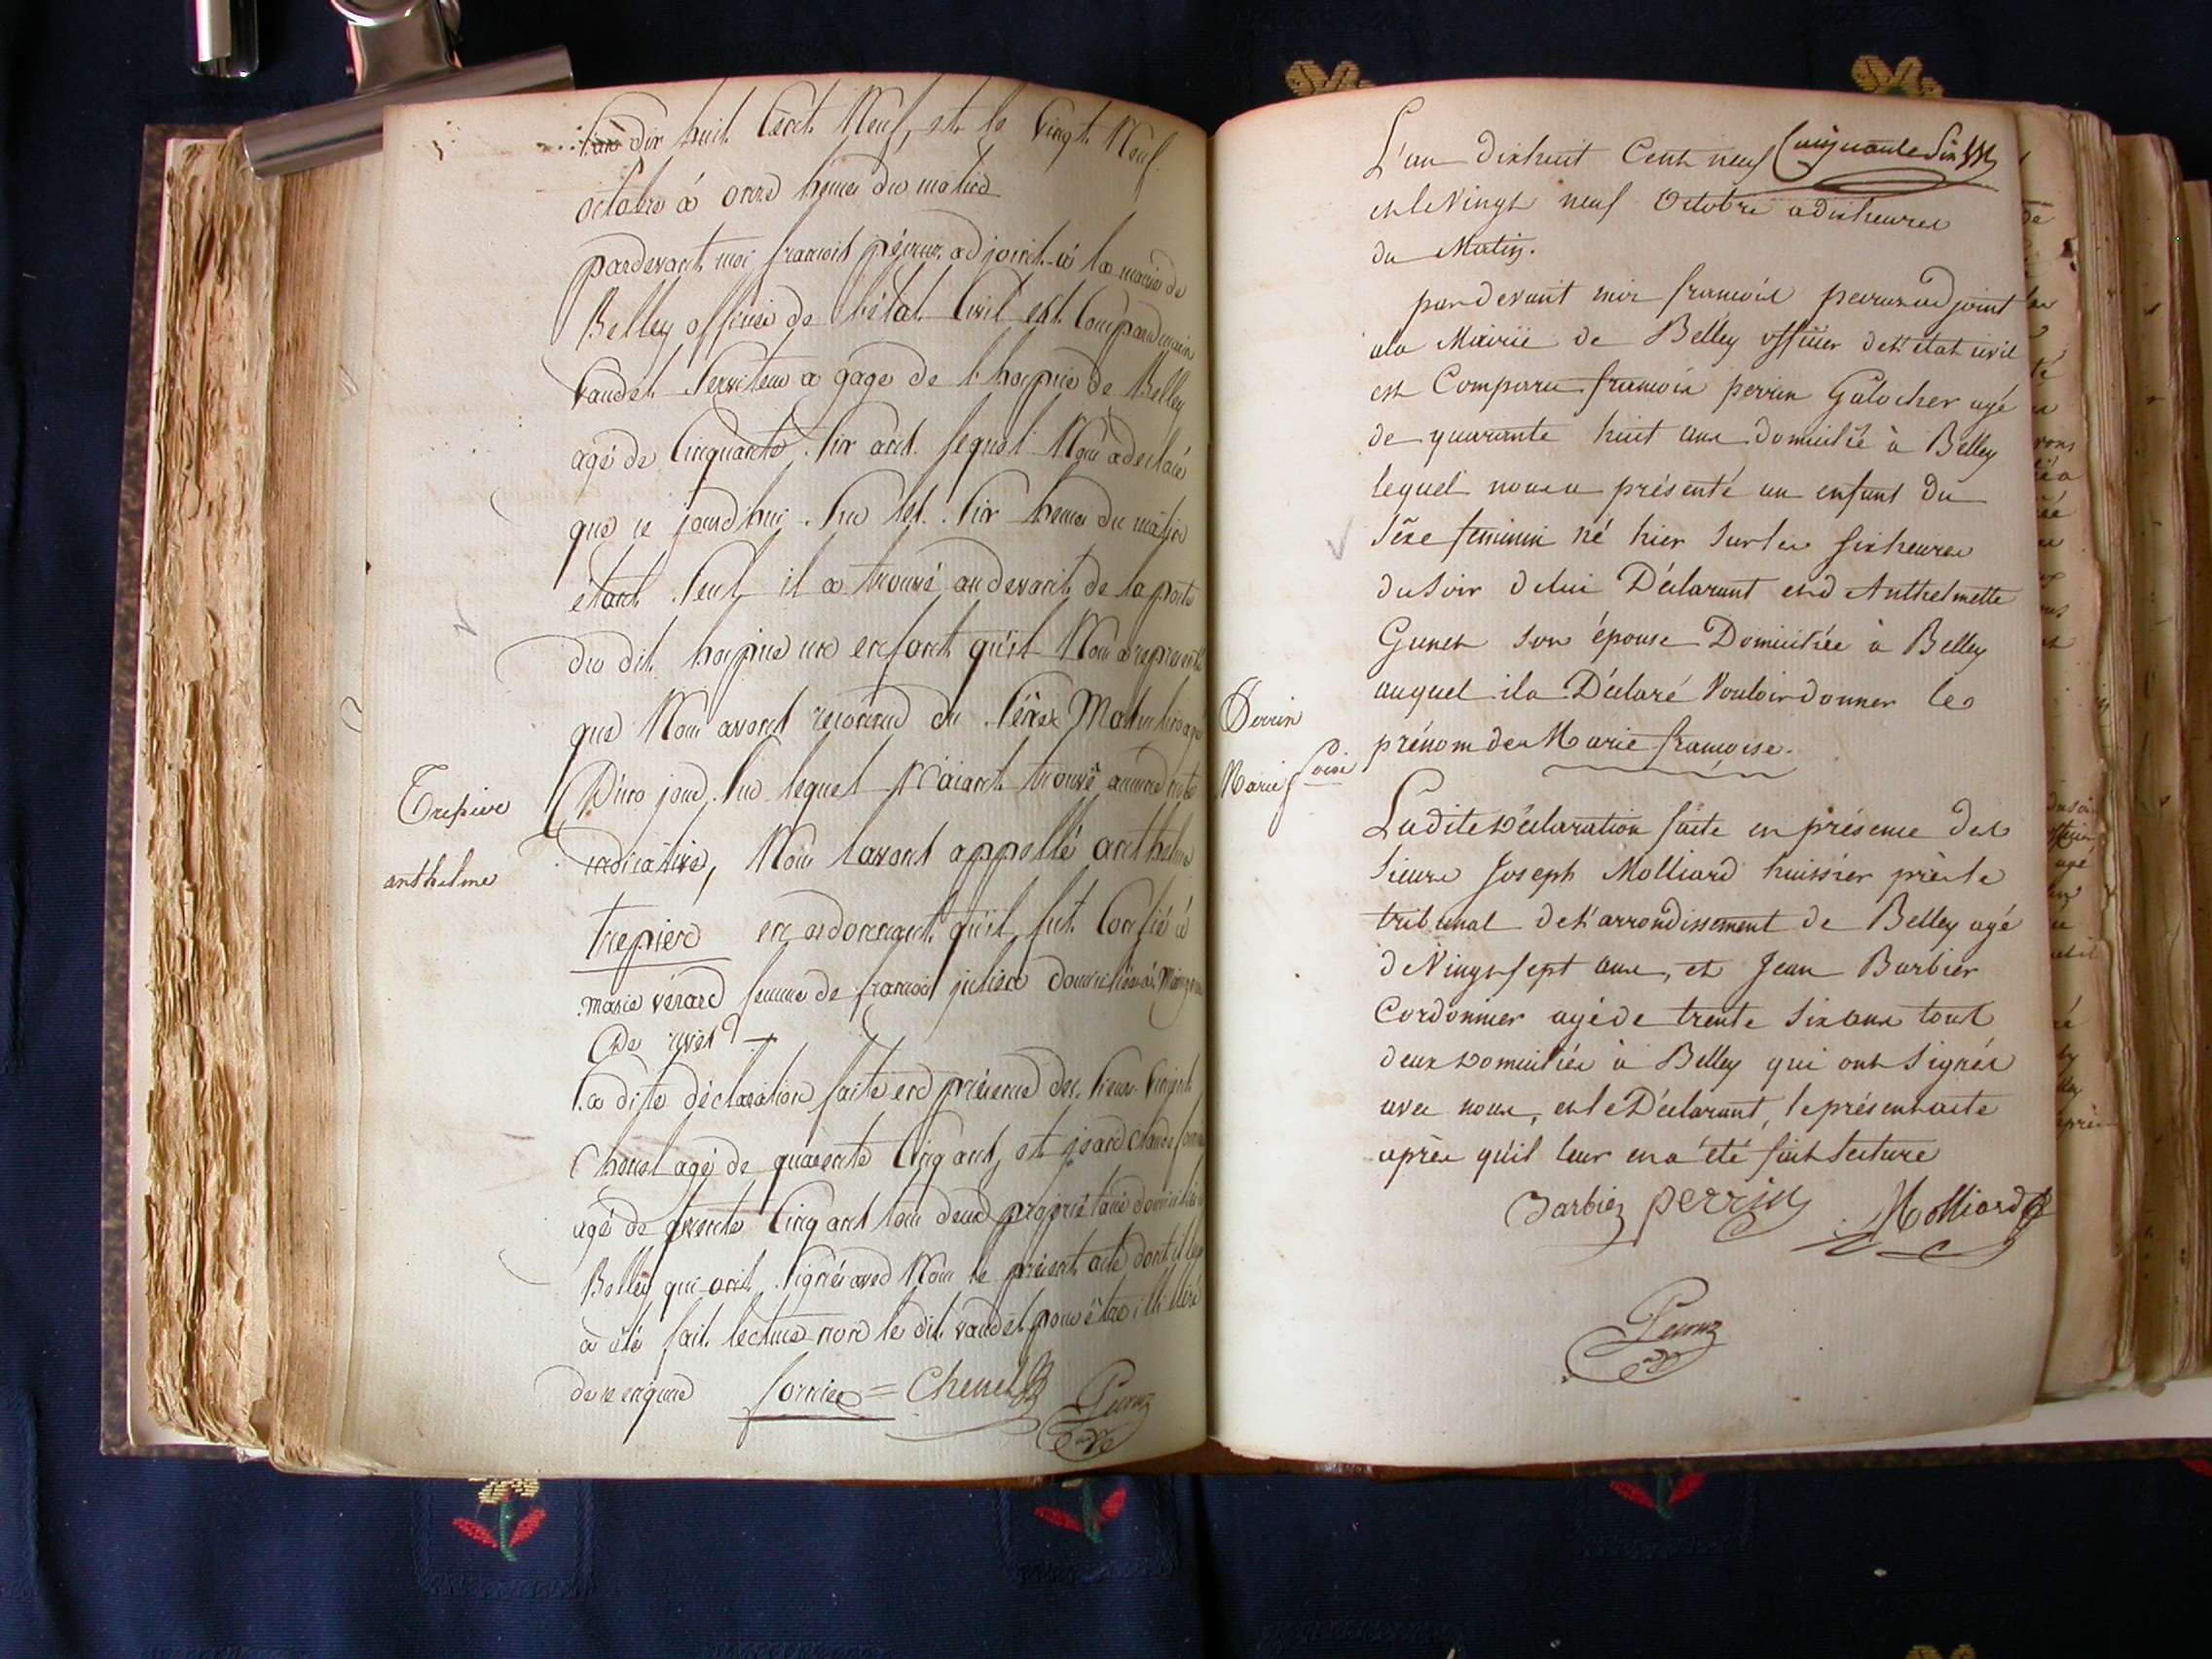 L'an dix huit Cent Neuf, et le Vingt Neuf
octobre à onze heures du matin
pardevant moi françois péruz adjoint à la mairie de
Belley officier de l'état Civil est Comparu
vaudet Serviteur a gage de l'hospice de Belley
agé de Cinquante Six ans lequel Nous a déclaré
que ce jourdhui Sur les Six heures du matin
étant Seul il a trouvé au devant de la porte
du dit hospice un enfant qu'il Nous a représenté
que Nous avons reconnu du Séxe Masculin agé
D'un jour Sur lequel N'aiant trouvé aucune note
Trepier
indicative, Nous lavons appellé anthelme
anthelme
trepier en ordonnant qu'il fut Confié à
marie vérard femme de françois julien domiciliée à
La dite déclaration faite en présence des Sieurs Vincent
Chenel agé de quarante Cinq ans, et jean Claude fornier
agé de trente Cinq ans tous deux propriétaires domiciliés
Belley qui ont Signés avec Nous le présent acte dont il leur
a été fait lecture non le dit vaudet pour être illitéré
de ce enquis fornier = Chenel Peruz
Cinquante Six
L'an dixhuit Cent neuf
et le Vingt neuf Octobre a dix heures
du Matin.
par devant moi françois peruz adjoint
a la Mairie de Belley officier de l'état civil
est Comparu françois perrin Galocher agé
de quarante huit ans domicilié à Belley
lequel nous a présenté un enfant du
Séxe feminin né hier Sur les six heures
du Soir de lui Déclarant et d'Anthelmette
Gunet son épouse Domiciliée à Belley
auquel il a Déclaré Vouloir donner les
Perrin
prénom de Marie françoise.
Marie foise
La dite Déclaration faite en présence des
Sieurs Joseph Molliard huissier près le
tribunal de l'arrondissement de Belley agé
de Vingt sept ans, et Jean Barbier
Cordonnier agé de trente Six ans tous
deux Domiciliés à Belley qui ont Signés
avec nous, et le Déclarant, le présent acte
après qu'il leur en a été fait lecture
Barbier perrin Molliard
Peruz